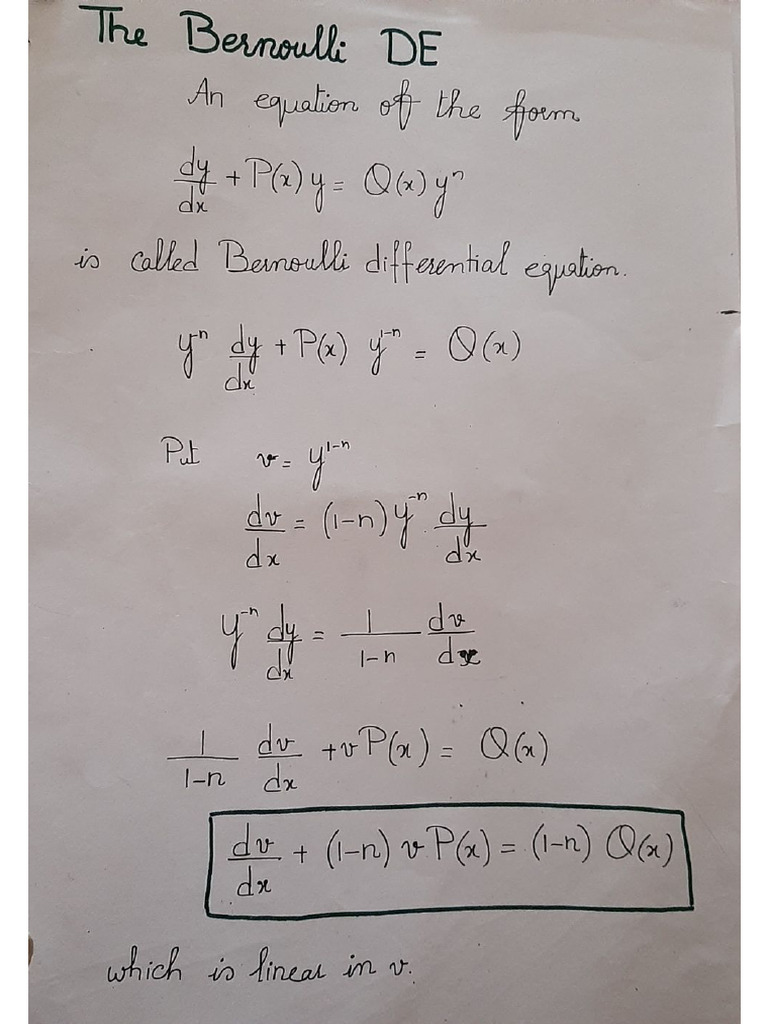 The Bernoulli DE
An equation of the form
dy/dx + P(x) y = Q(x) yⁿ
is called Bernoulli differential equation.
y⁻ⁿ dy/dx + P(x) y¹⁻ⁿ = Q(x)
Put v = y¹⁻ⁿ
dv/dx = (1-n) y⁻ⁿ dy/dx
y⁻ⁿ dy/dx = 1/1-n dv/dx
1/1-n dv/dx + v P(x) = Q(x)
dv/dx + (1-n) v P(x) = (1-n) Q(x)
which is linear in v.